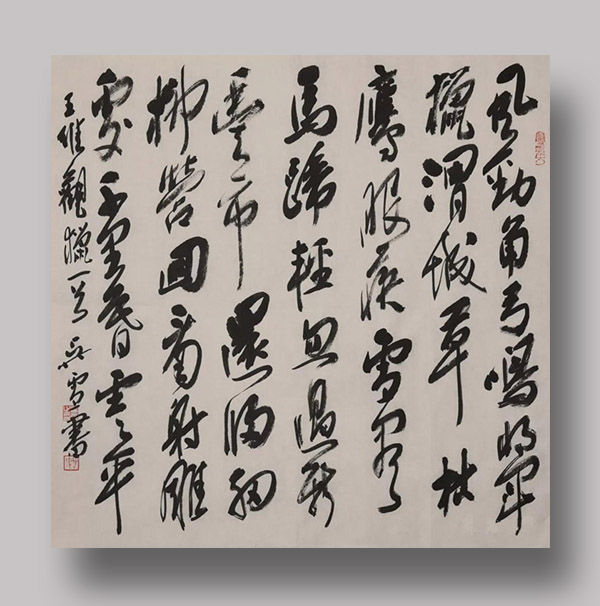 風勁角弓鳴將軍
獵渭城草枯
鷹眼疾雪盡
馬蹄輕忽過新
豐市還歸細
柳營回看射雕
處千里暮雲平
王維觀獵一首 吳雪書